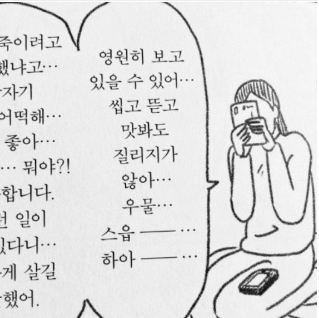 죽이려고
했냐고…
자기
어떡해…
좋아…
… 뭐야?!
합니다.
일이
있다니…
게 살길
했어.
영원히 보고
있을 수 있어…
씹고 뜯고
맛봐도
질리지가
않아…
우물…
스읍 ── …
하아 ── …